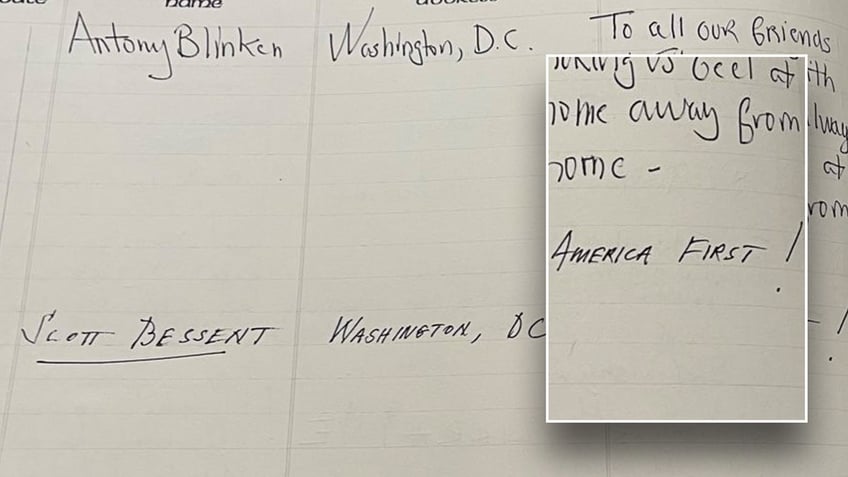 name
Antony Blinken Washington, D.C. To all our friends
feel at
home away from
home -
AMERICA FIRST !
SCOTT BESSENT WASHINGTON, DC